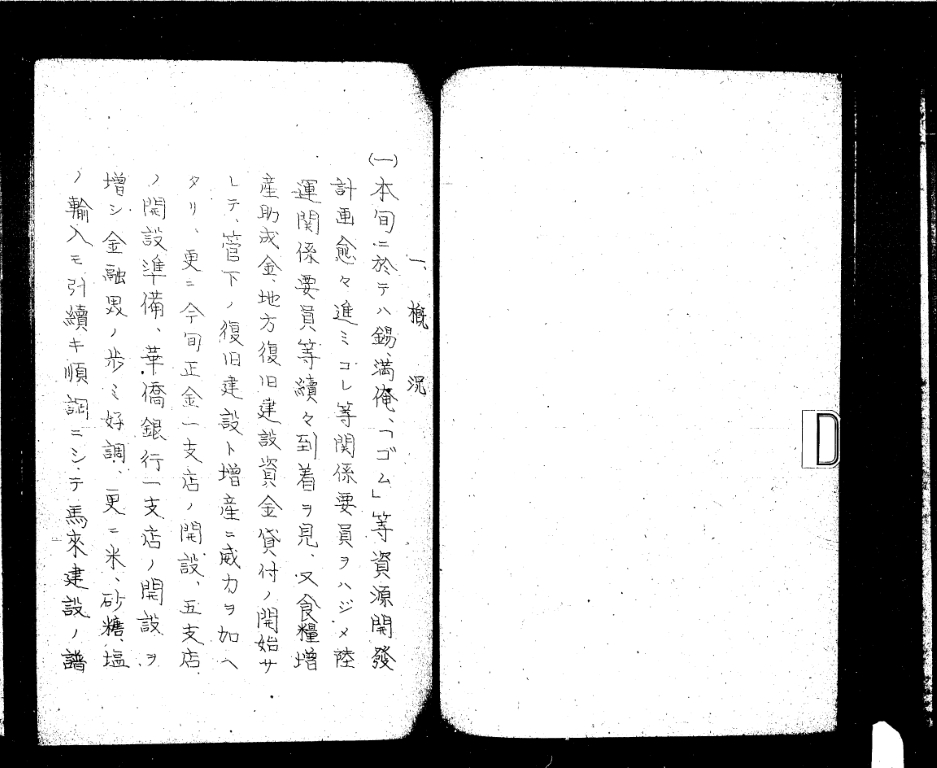 一、概況
(一)本旬ニ於テハ錫、満俺、「ゴム」等資源開發
計画愈々進ミコレ等関係要員ヲハジメ陸
運関係要員等續々到着ヲ見、又食糧増
産助成金、地方復旧建設資金貸付ノ開始サ
レテ、管下ノ復旧建設ト増産ニ威力ヲ加ヘ
タリ、更ニ今旬正金一支店ノ開設、五支店
ノ開設準備、華僑銀行一支店ノ開設ヲ
増シ金融界ノ歩ミ好調、更ニ米、砂糖、塩
ノ輸入モ引續キ順調ニシテ馬來建設ノ譜
D